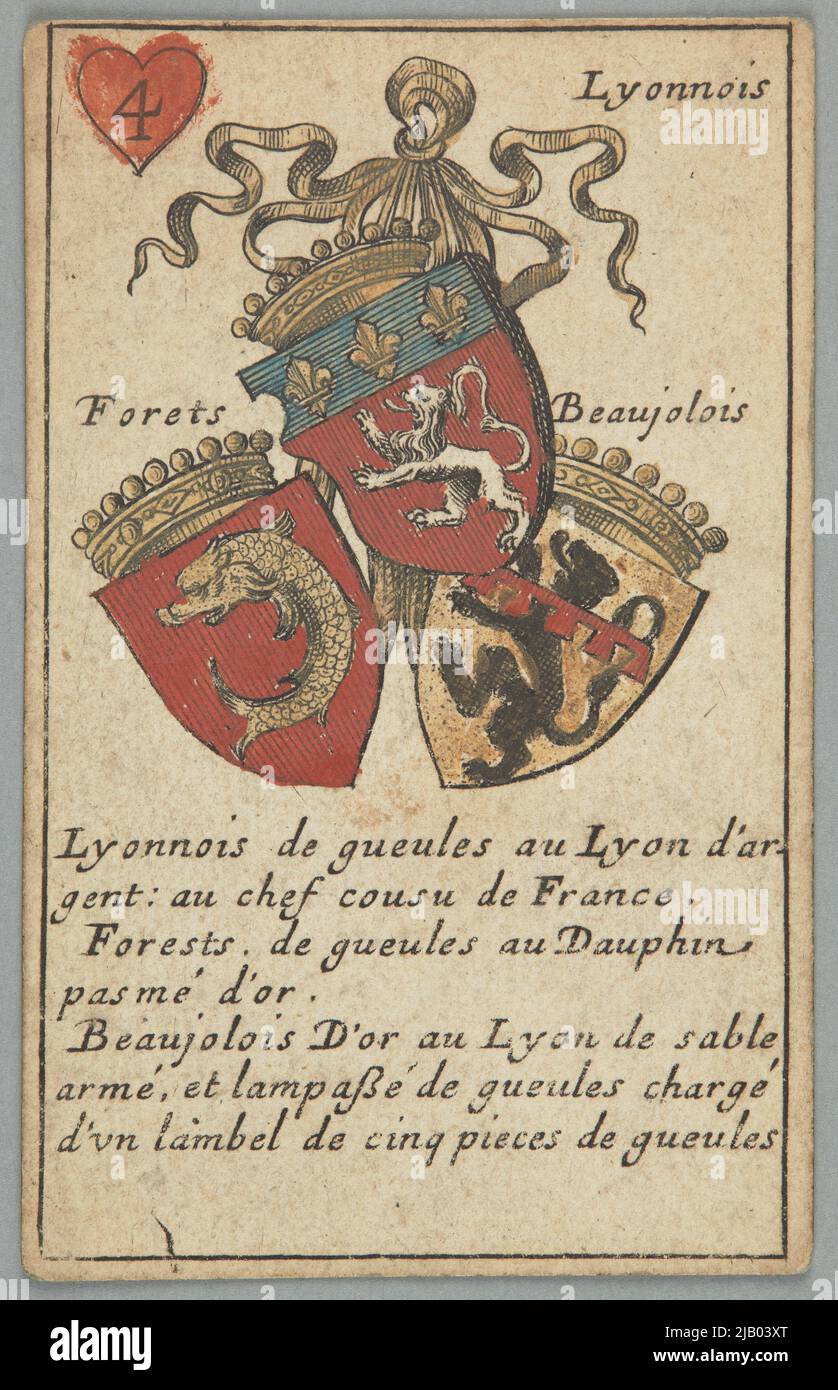 4
Lyonnois
Forets
Beaujolois
Lyonnois de gueules au Lyon d'ar-
gent: au chef cousu de France.
Forests. de gueules au Dauphin
pasmé d'or.
Beaujolois D'or au Lyon de sable
armé, et lampaßé de gueules chargé
d'vn lambel de cinq pieces de gueules
alamy
alamy
Image ID: 2JB03XT
www.alamy.com